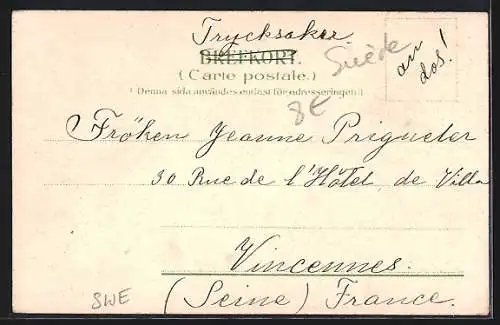 Trycksaker
BREFKORT.
Suède
au
dos!
(Carte postale.)
(Denna sida användes endast för adresseringen.)
8€
Fröken Jeanne Prigueler
30 Rue de l'Hôtel de Ville
Vincennes.
SWE
(Seine) France.